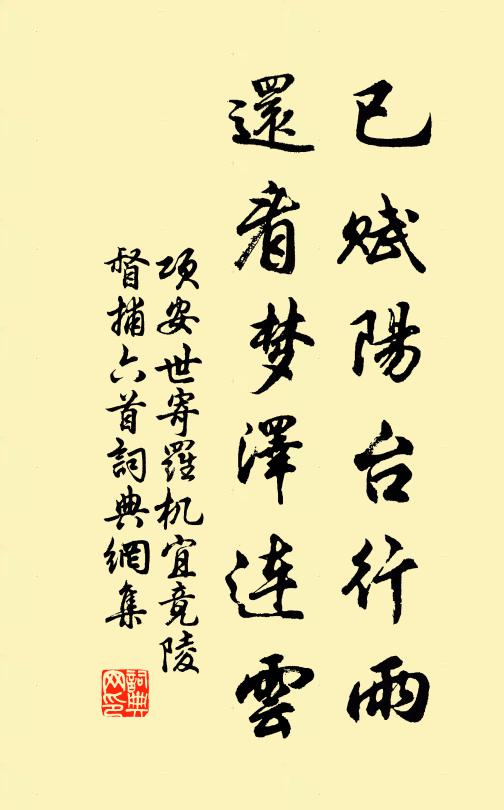 已赋陽台行雨
還看梦澤連雲
项安世寄羅机宜竟陵
督捕六首詞典網集
詞典网印